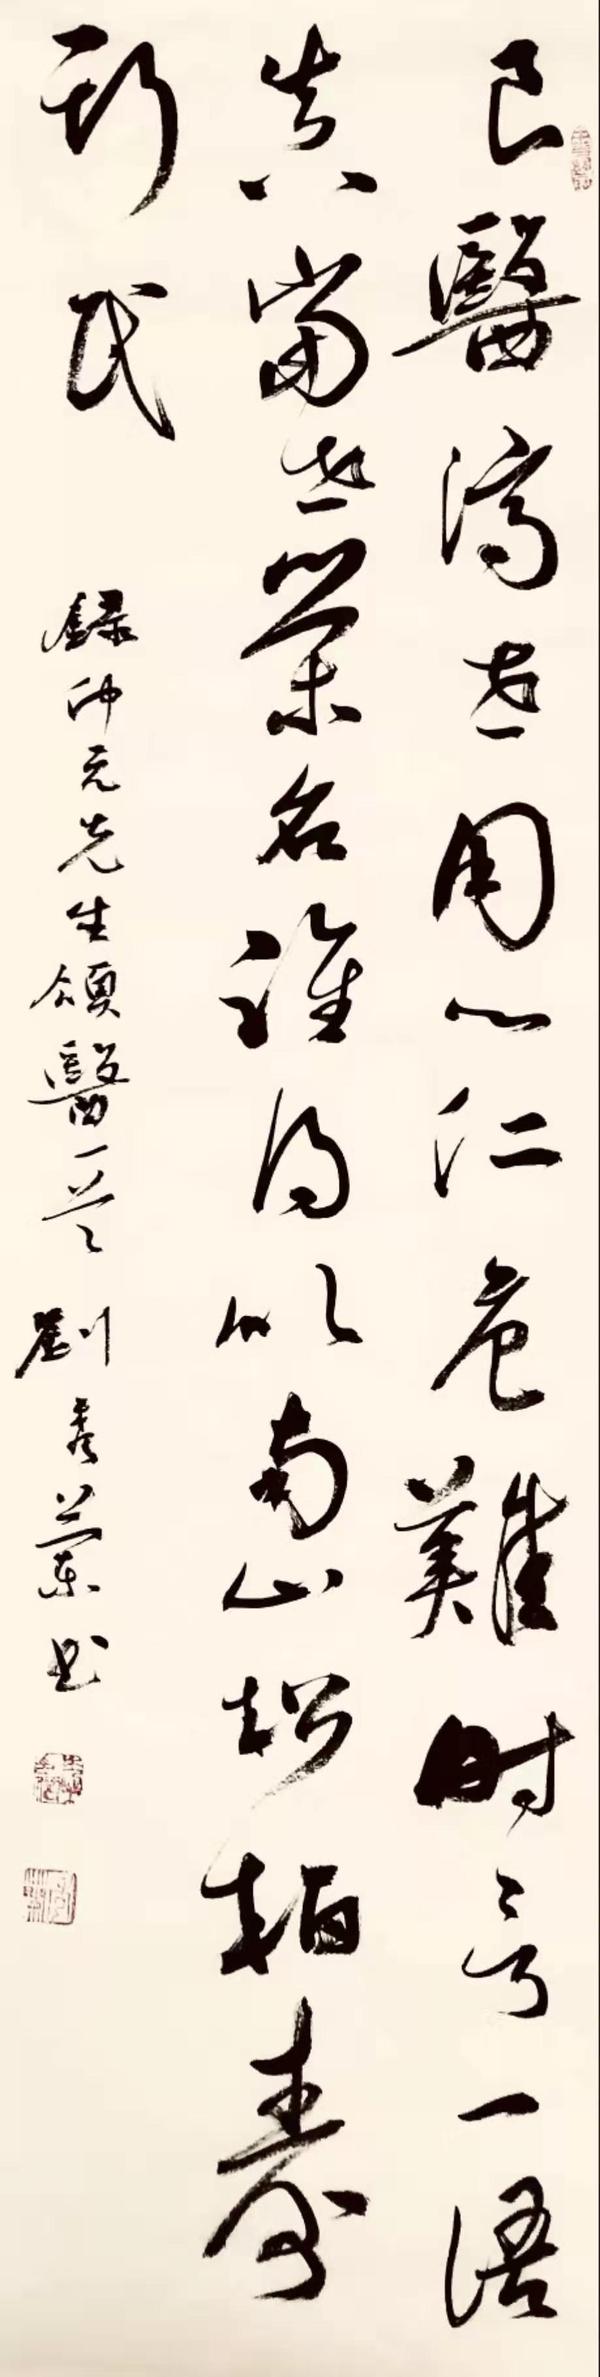 良醫濟世用心仁危難時一語
真當世榮名誰得似南山松柏壽
斯民
錄仲元先生頌醫一首 劉秀蘭書